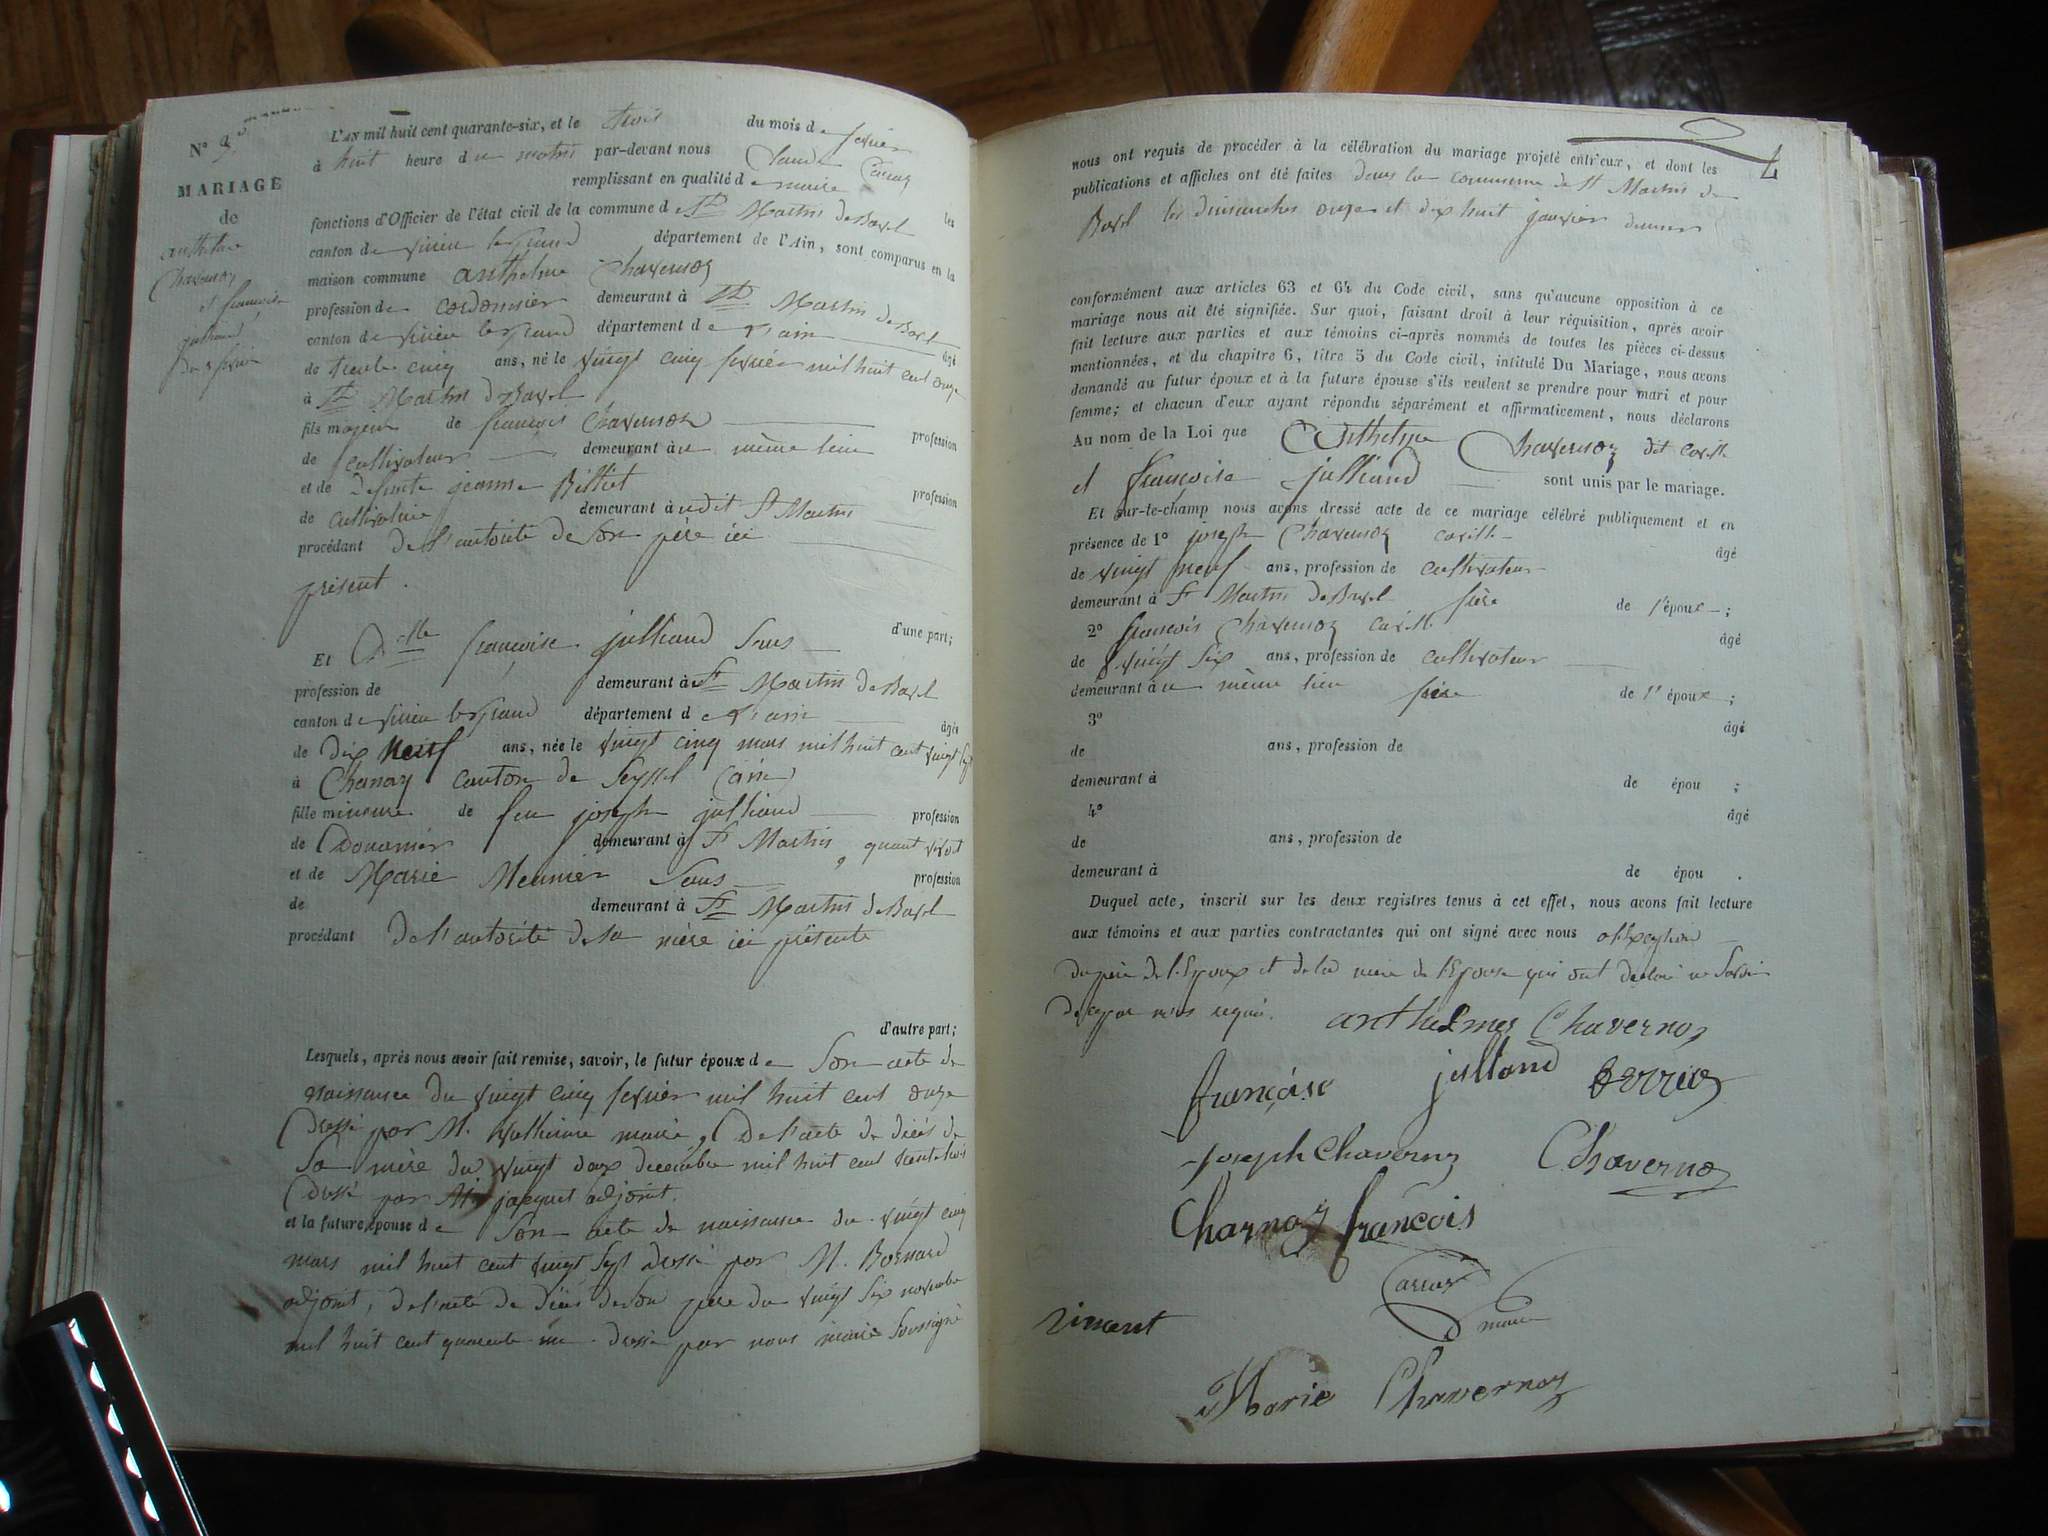 N° 3
MARIAGE
de
anthelme
Chavernoz
et françoise
julliand
L'AN mil huit cent quarante-six, et le trois du mois de fevrier
à huit heure du matin par-devant nous Claude
remplissant en qualité de maire les
fonctions d'Officier de l'état civil de la commune de St Martin de Bavel
canton de virieu le grand département de l'Ain, sont comparus en la
maison commune anthelme Chavernoz
profession de cordonnier demeurant à St Martin de Bavel
canton de virieu le grand département de l'ain âgé
de trente cinq ans, né le vingt cinq fevrier mil huit cent onze
à St Martin de Bavel
fils majeur de françois Chavernoz profession
de cultivateur demeurant au même lieu
et de défunte jeanne Billiet profession
de cultivatrice demeurant audit St Martin
procédant de l'autorité de son père ici
présent.
d'une part;
Et Dlle françoise julliand sans
profession de demeurant à St Martin de Bavel
canton de virieu le grand département de l'ain âgée
de dix neuf ans, née le vingt cinq mars mil huit cent vingt sept
à Chanay canton de Seyssel (ain)
fille mineure de feu joseph julliand profession
de Douanier demeurant à St Martin, quant vivoit
et de Marie Meunier sans profession
de demeurant à St Martin de Bavel
procédant de l'autorité de sa mère ici présente
d'autre part;
Lesquels, après nous avoir fait remise, savoir, le futur époux de son acte de
naissance du vingt cinq fevrier mil huit cent onze
dressé par M. maire, de l'acte de décès de
sa mère du vingt deux decembre mil huit cent trente trois
dressé par M. jacquet adjoint.
et la future épouse de son acte de naissance du vingt cinq
mars mil huit cent vingt sept dressé par M. Bornard
adjoint, de l'acte de décès de son père du vingt six novembre
mil huit cent quarante un dressé par nous maire soussigné
4
nous ont requis de procéder à la célébration du mariage projeté entr'eux, et dont les
publications et affiches ont été faites dans la commune de St Martin de
Bavel les dimanches onze et dix huit janvier dernier
conformément aux articles 63 et 64 du Code civil, sans qu'aucune opposition à ce
mariage nous ait été signifiée. Sur quoi, faisant droit à leur réquisition, après avoir
fait lecture aux parties et aux témoins ci-après nommés de toutes les pièces ci-dessus
mentionnées, et du chapitre 6, titre 5 du Code civil, intitulé Du Mariage, nous avons
demandé au futur époux et à la future épouse s'ils veulent se prendre pour mari et pour
femme; et chacun d'eux ayant répondu séparément et affirmativement, nous déclarons
Au nom de la Loi que Anthelme Chavernoz dit cavill
et françoise julliand sont unis par le mariage.
Et sur-le-champ nous avons dressé acte de ce mariage célébré publiquement et en
présence de 1° joseph Chavernoz cavill âgé
de vingt neuf ans, profession de cultivateur
demeurant à St Martin de Bavel frère de l'époux;
2° françois Chavernoz cavill âgé
de vingt six ans, profession de cultivateur
demeurant au même lieu frère de l'époux;
3° âgé
de ans, profession de
demeurant à de épou ;
4° âgé
de ans, profession de
demeurant à de épou .
Duquel acte, inscrit sur les deux registres tenus à cet effet, nous avons fait lecture
aux témoins et aux parties contractantes qui ont signé avec nous
du père de l'Epoux et de la mère de l'Epouse qui ont declaré ne savoir
de ce requis. anthelmes Chavernoz
françoise julland
joseph Chavernoz Chavernoz
Charnoz françois
maire
vincent
Marie Chavernoz